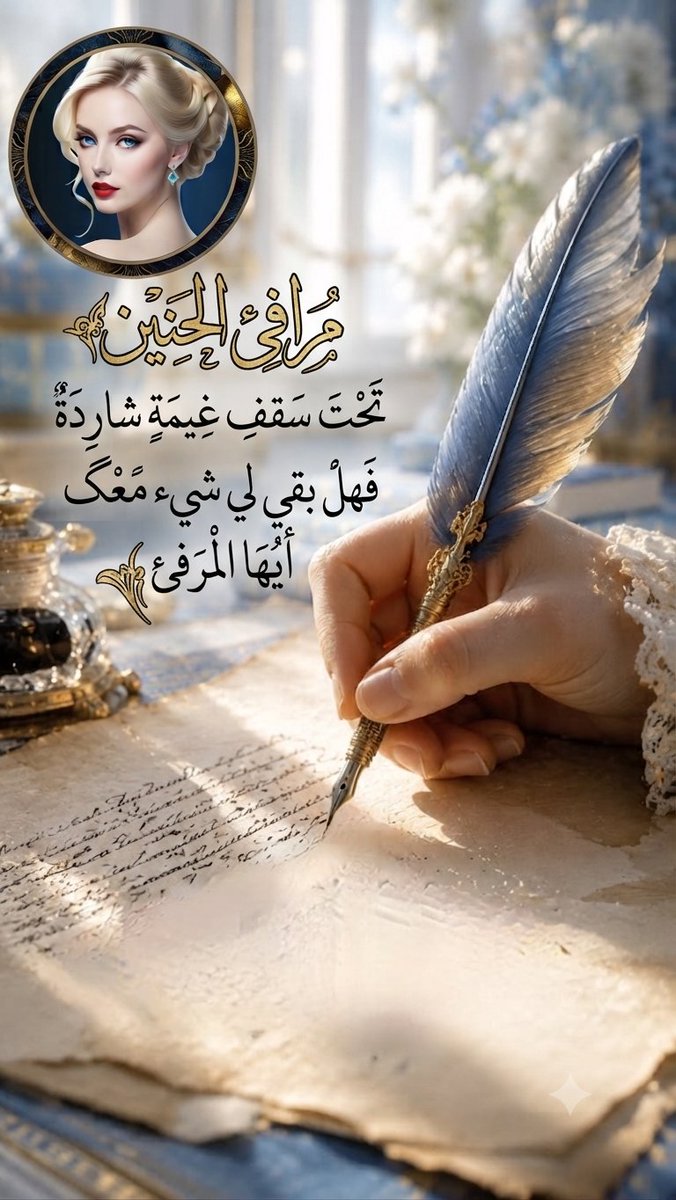 مُرافِئ الحَنِيْن
تَحْتَ سَقفِ غِيمَةٍ شارِدَةٌ
فَهلْ بقي لي شيء مًعْگ
أيُهَا الْمَرَفئ